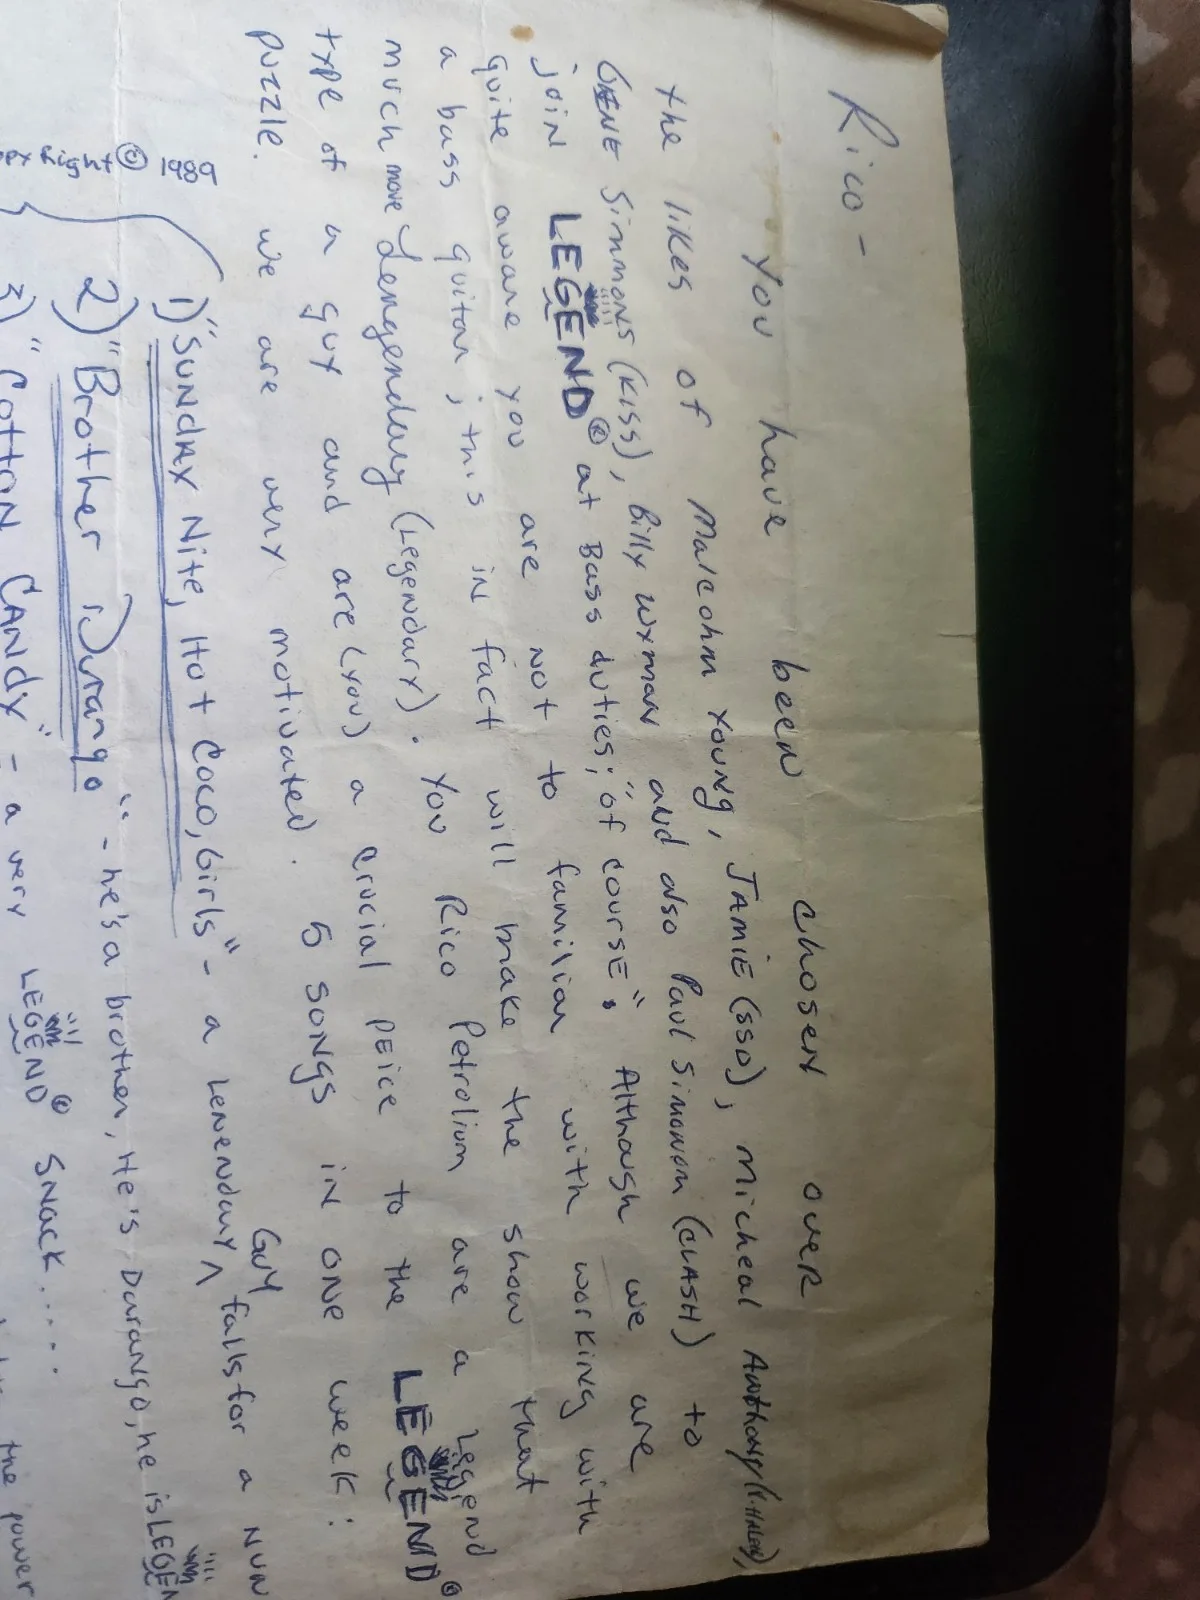 Rico -
You have been chosen over
the likes of Malcohm Young, JAMIE (SSD), Micheal Anthony (V. HALEN),
GENE Simmons (KISS), Billy Wyman and also Paul Simonon (CLASH) to
join LEGEND © at Bass duties; "of course". Although we are
quite aware you are not to familiar with working with
a bass guitar; this in fact will make the show that
much more Lengendary (Legendary). You Rico Petrolium are a Legend
type of a guy and are (you) a crucial peice to the LEGEND ©
puzzle. We are very motivated. 5 songs in one week:
opy Right © 1989
1) "Sunday Nite, Hot Coco, Girls" - a Lenendary GUY falls for a NUN
2) "Brother Durango" - he's a brother, He's Durango, he is LEGEN
3) "Cotton Candy" - a very LEGEND © SNACK....
the power